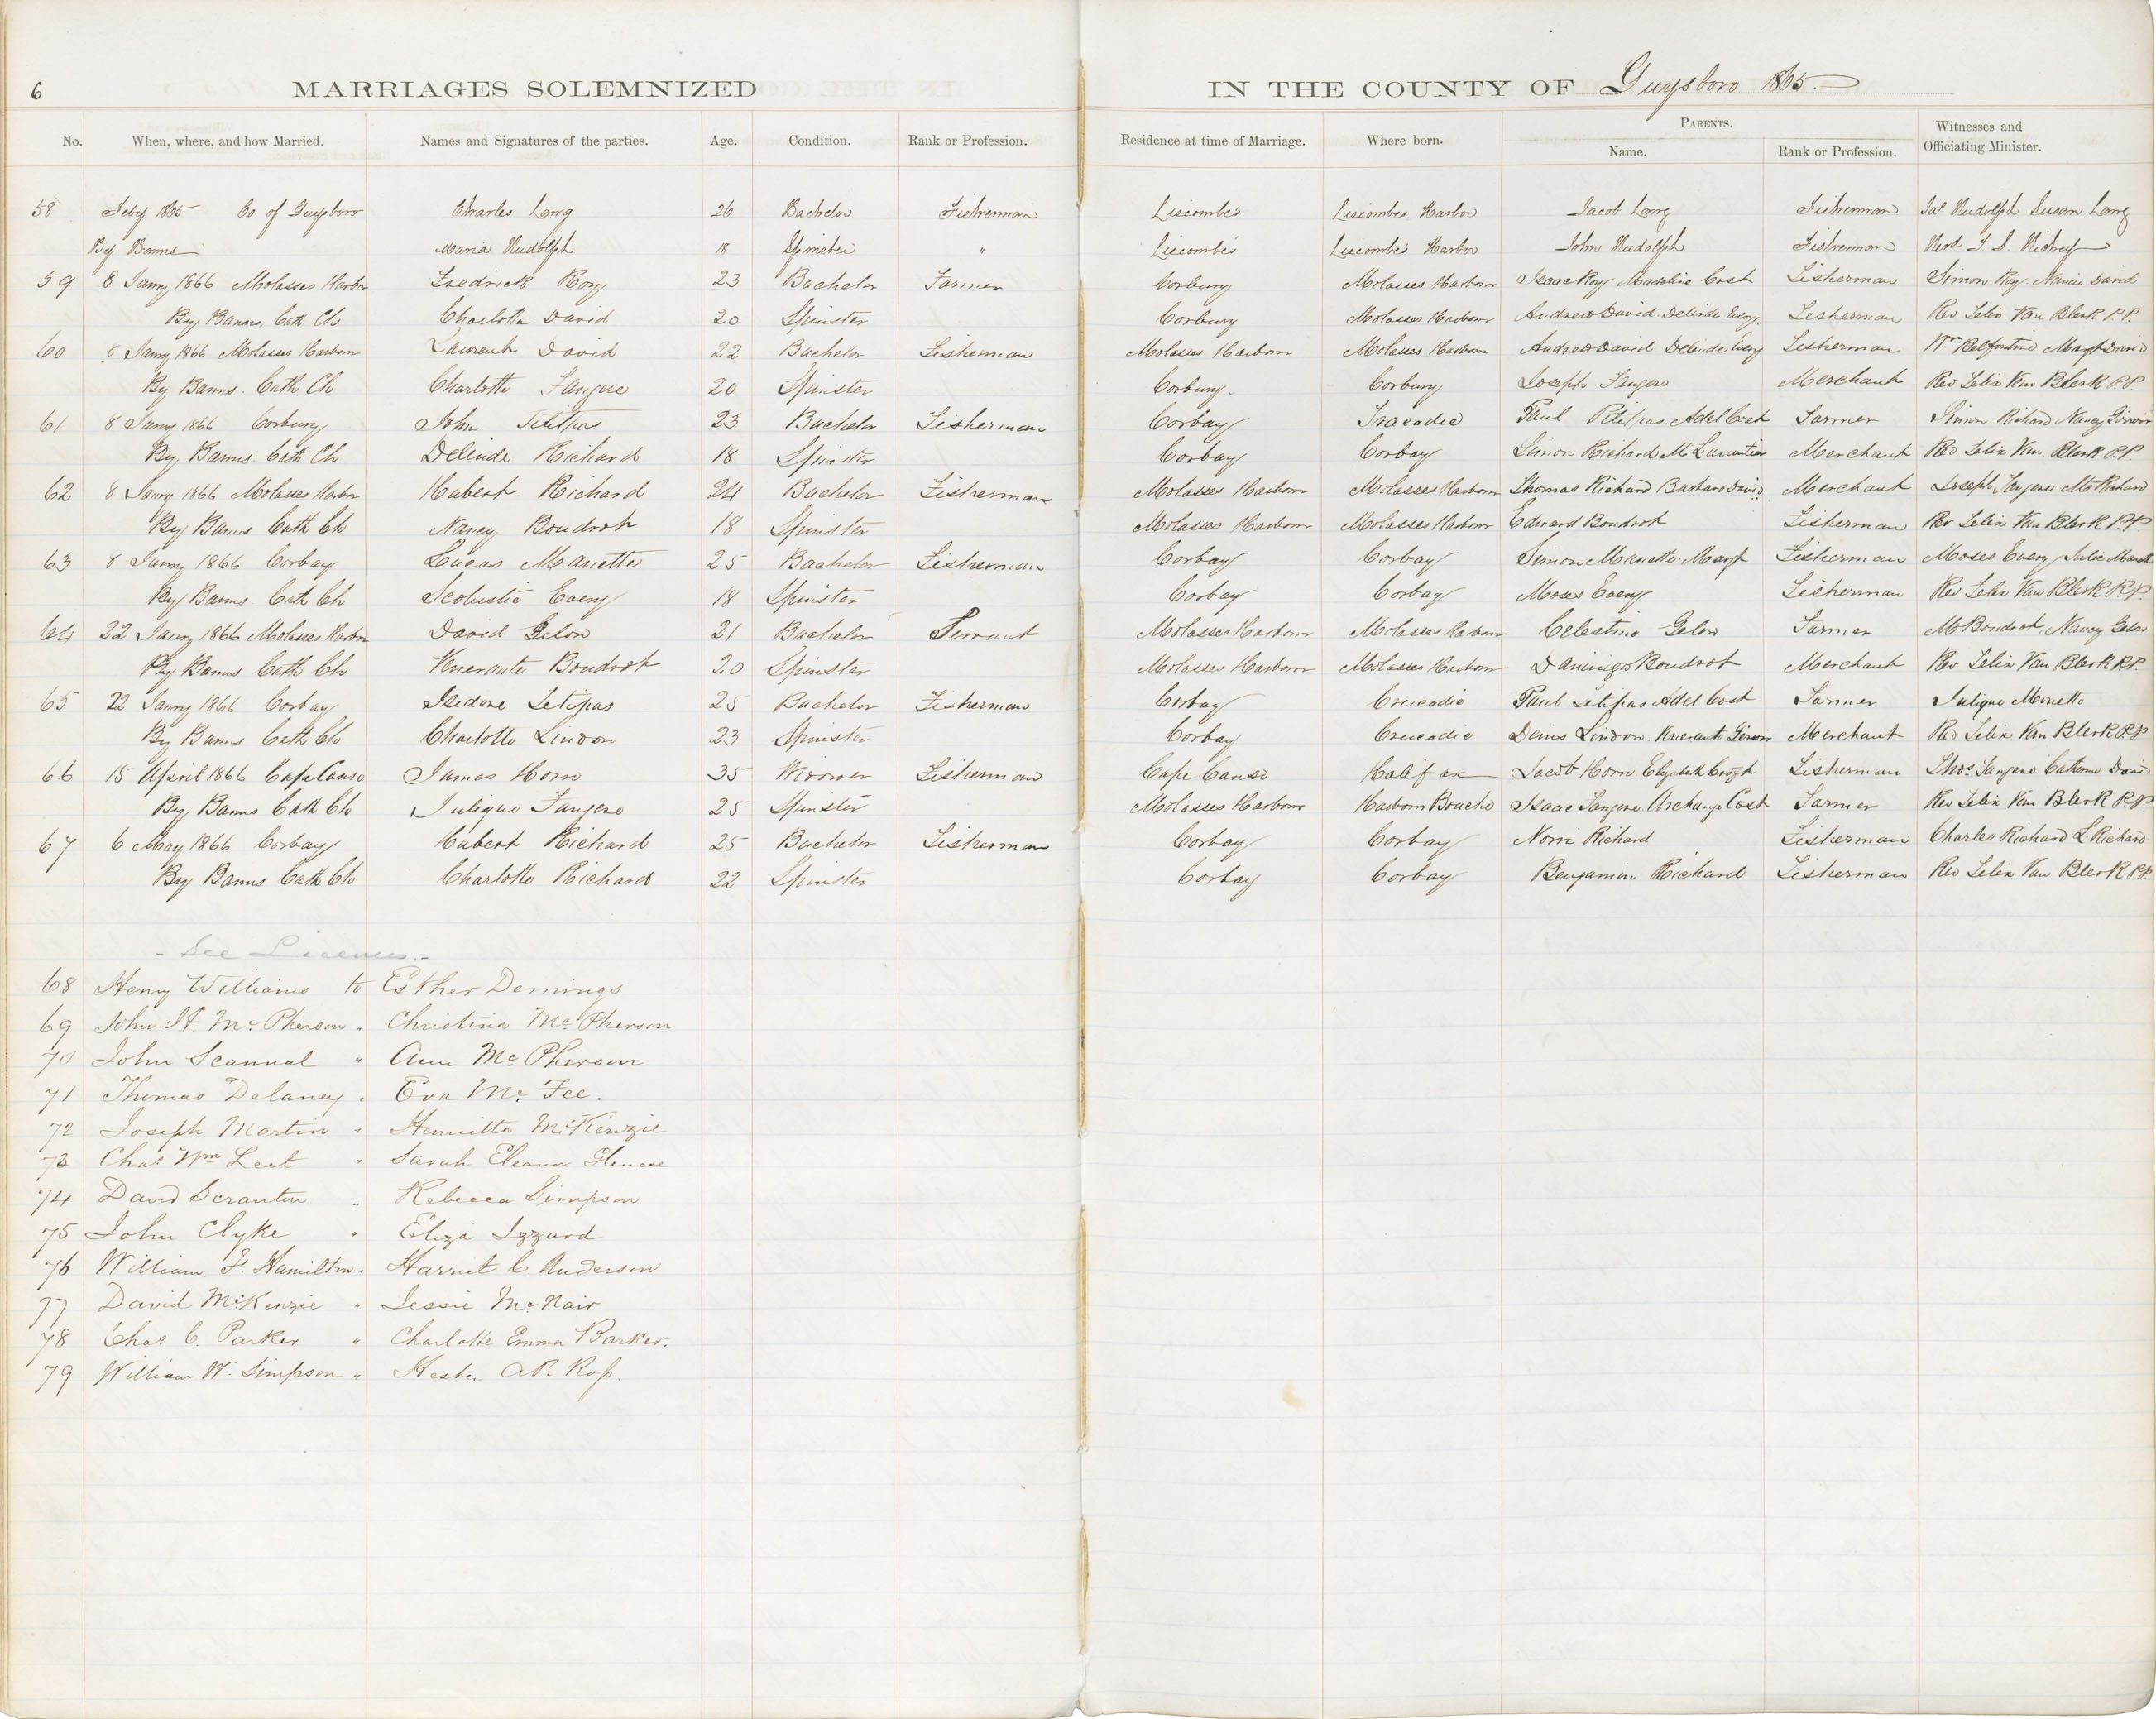 6 MARRIAGES SOLEMNIZED IN THE COUNTY OF Guysboro 1865.
PARENTS.
No. When, where, and how Married. Names and Signatures of the parties. Age. Condition. Rank or Profession. Residence at time of Marriage. Where born. Name. Rank or Profession. Witnesses and Officiating Minister.
58 Feby 1865 Co of Guysboro Charles Long 26 Bachelor Fisherman Liscombe's Liscombes Harbor Jacob Long Fisherman Rudolph Susan Long
By Banns Maria Rudolph 18 Spinster " Liscombe's Liscombe's Harbor John Rudolph Fisherman
59 8 Janry 1866 Molasses Harbor Fredrick Roy 23 Bachelor Farmer Corbury Molasses Harbour Isaac Roy Madeline Cost Fisherman Simon Roy David
By Banns. Cath Ch Charlotte David 20 Spinster Corbury Molasses Harbour Andrew David. Delinde Every Fisherman Rev Felix Van Blerk P.P.
60 8 Janry 1866 Molasses Harbour Laurent David 22 Bachelor Fisherman Molasses Harbour Molasses Harbour Andrew David Delinde Every Fisherman Wm Margt David
By Banns. Cath Ch Charlotte Fougere 20 Spinster Corbury. Corbury Joseph Fougere Merchant Rev Felix Van Blerk P.P.
61 8 Janry 1866 Corbury John Petitpas 23 Bachelor Fisherman Corbay Tracadie Paul Petitpas Adel Cost Farmer Simon Richard Nancy Girroir
By Banns. Cath Ch Delinde Richard 18 Spinster Corbay Corbay Simon Richard M Merchant Rev Felix Van Blerk P.P.
62 8 Janry 1866 Molasses Harbor Hubert Richard 24 Bachelor Fisherman Molasses Harbour Molasses Harbour Thomas Richard Barbara David Merchant Joseph Fougere M Richard
By Banns Cath Ch Nancy Boudrot 18 Spinster Molasses Harbour Molasses Harbour Edward Boudrot Fisherman Rev Felix Van Blerk P.P.
63 8 Janry 1866 Corbay Lucas Manette 25 Bachelor Fisherman Corbay Corbay Simon Manette Margt Fisherman Moses Every Julie Manette
By Banns. Cath Ch Scolastie Every 18 Spinster Corbay Corbay Moses Every Fisherman Rev Felix Van Blerk P.P.
64 22 Janry 1866 Molasses Harbor David Gelon 21 Bachelor Servant Molasses Harbour Molasses Harbour Celestine Gelon Farmer M Boudrot, Nancy Gelon
By Banns Cath Ch Venerante Boudrot 20 Spinster Molasses Harbour Molasses Harbour Boudrot Merchant Rev Felix Van Blerk P.P.
65 22 Janry 1866 Corbay Isedore Petipas 25 Bachelor Fisherman Corbay Paul Petipas Adel Cost Farmer Julique Manette
By Banns Cath Ch Charlotte Lindon 23 Spinster Corbay Denis Lindon. Venerante Girroir Merchant Rev Felix Van Blerk P.P.
66 15 April 1866 Cape Canso James Horn 35 Widower Fisherman Cape Canso Halifax Jacob Horn. Elizabeth Fisherman Thos Fougere Catherine David
By Banns Cath Ch Julique Fougere 25 Spinster Molasses Harbour Harbour Bouche Isaac Fougere. Archange Cost Farmer Rev Felix Van Blerk P.P.
67 6 May 1866 Corbay Hubert Richard 25 Bachelor Fisherman Corbay Corbay Richard Fisherman Charles Richard L. Richard
By Banns Cath Ch Charlotte Richard 22 Spinster Corbay Corbay Benjamin Richard Fisherman Rev Felix Van Blerk P.P.
- See Licenses. -
68 Henry Williams to Esther Demings
69 John H. McPherson . Christina McPherson
70 John Scannal " Ann McPherson
71 Thomas Delaney . Eva McFee.
72 Joseph Martin " Henrietta McKenzie
73 Chas Wm Leet " Sarah Eleanor Glencoe
74 David Scranton " Rebecca Simpson
75 John Clyke " Eliza Izzard
76 William F. Hamilton . Harriet C. Anderson
77 David McKenzie " Jessie McNair
78 Chas C. Parker " Charlotte Emma Barker.
79 William W. Simpson " Hester A R Ross.